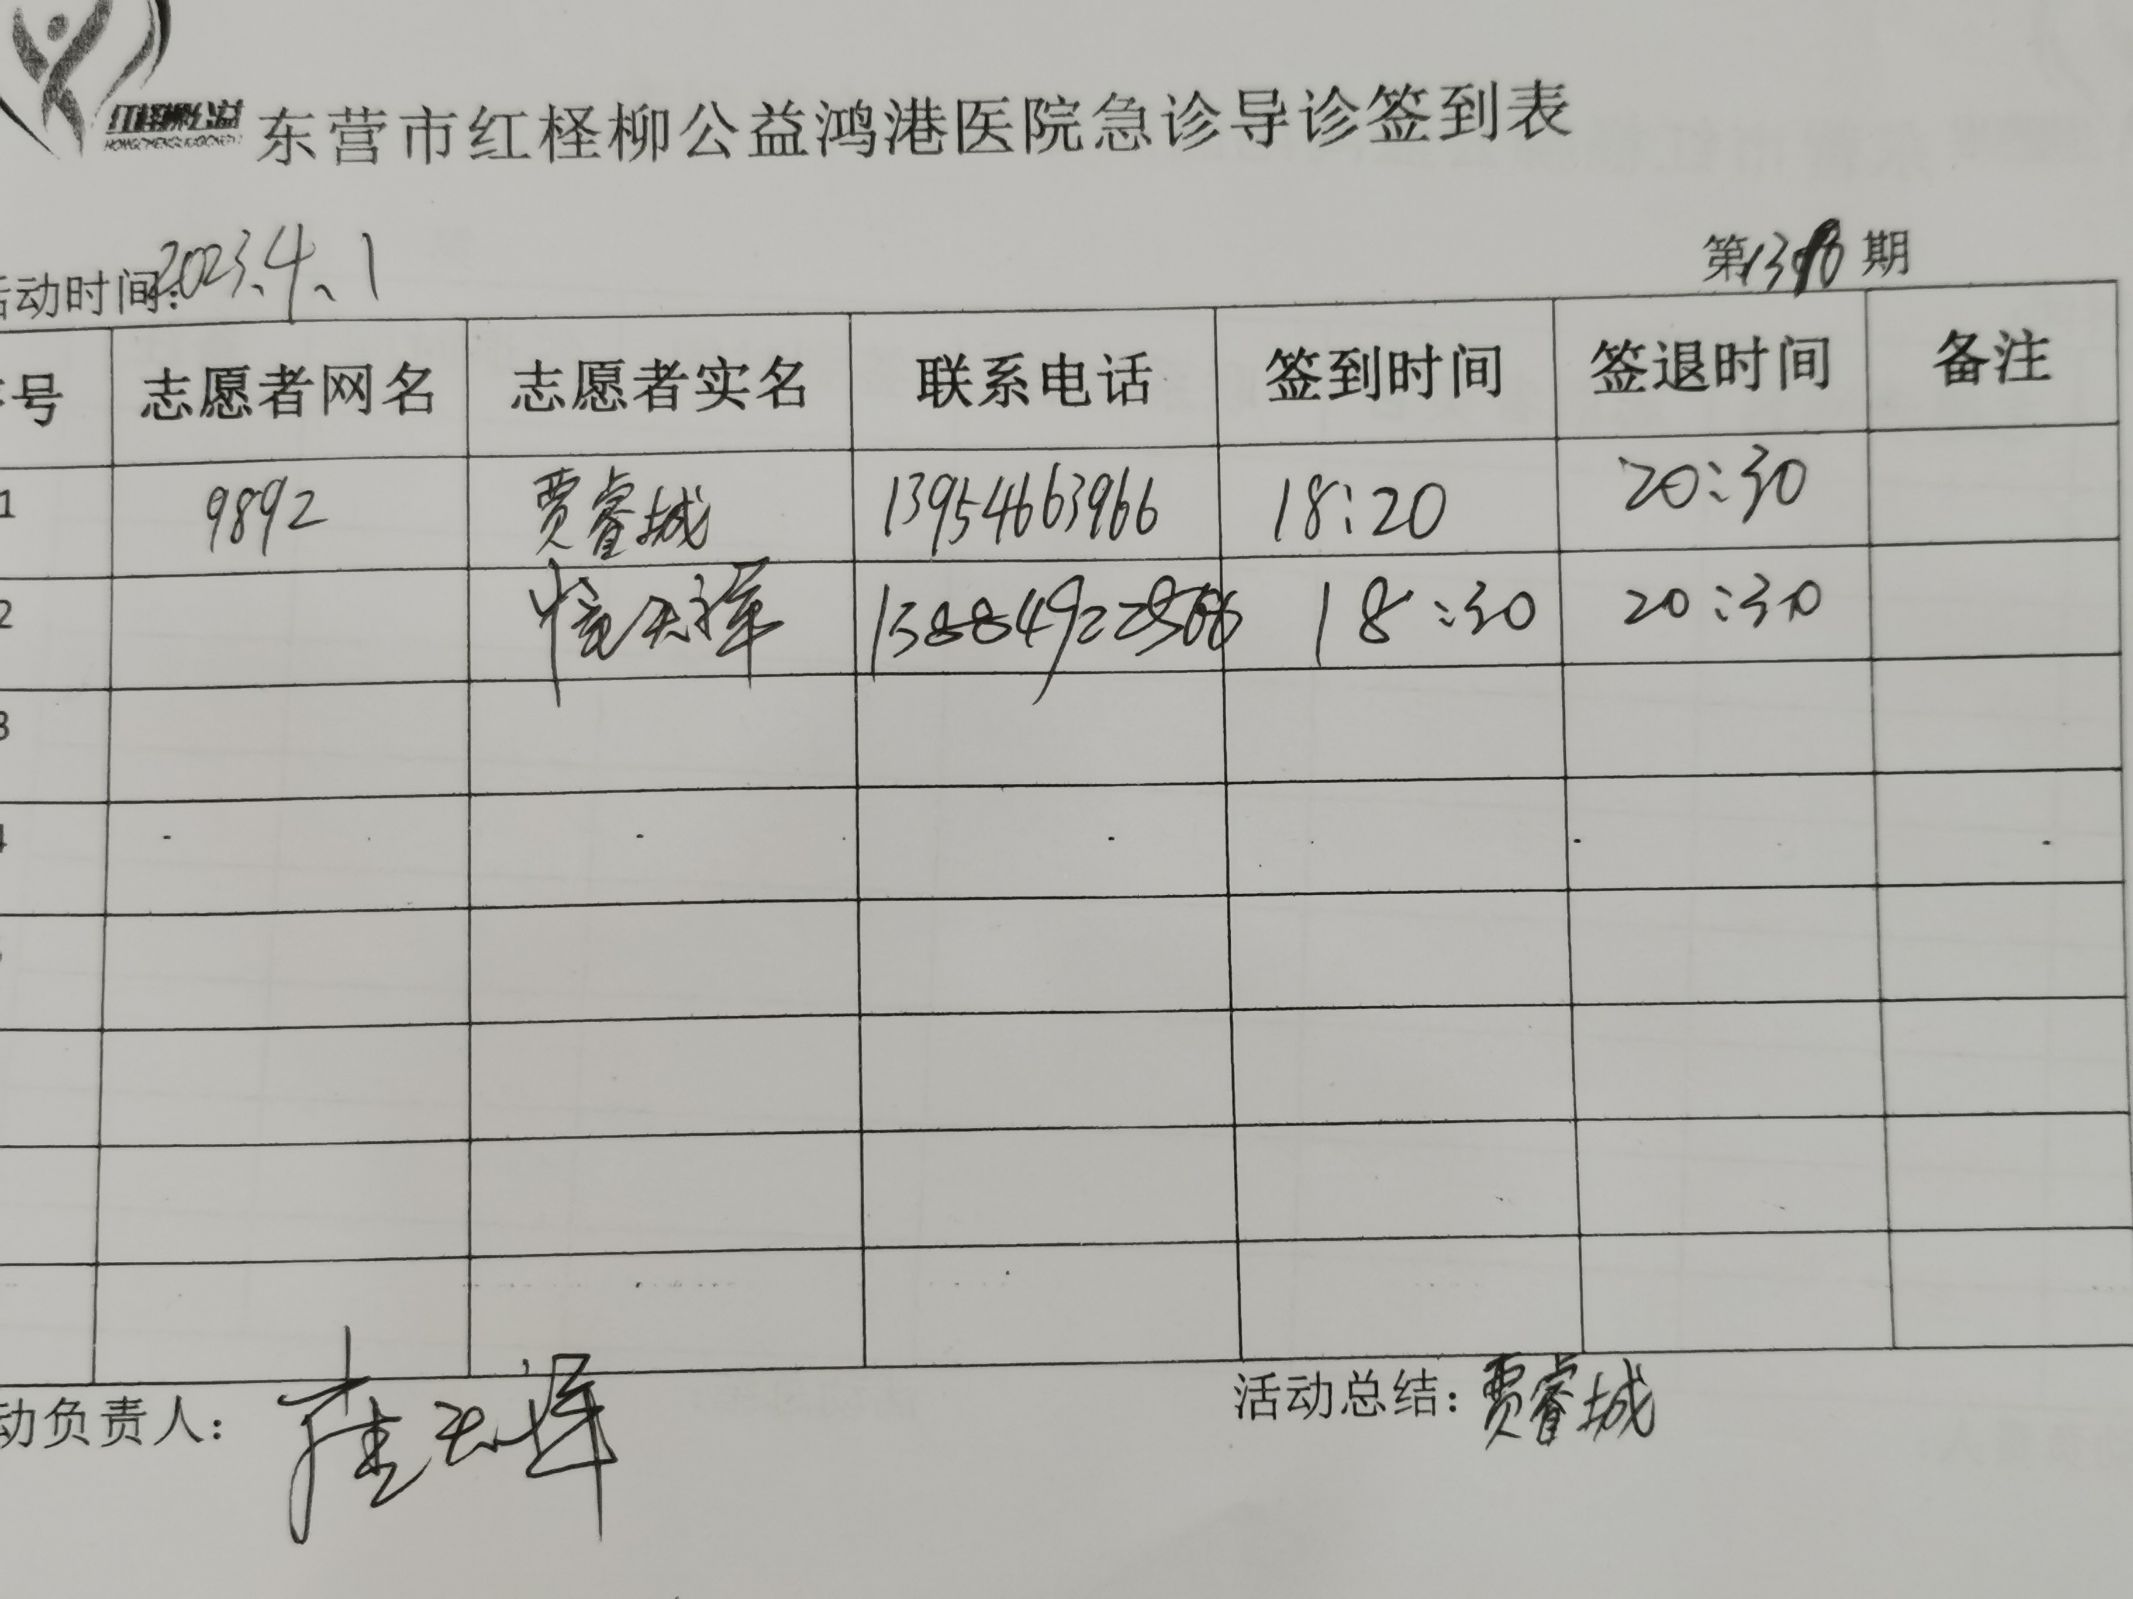 红柽柳公益
东营市红柽柳公益鸿港医院急诊导诊签到表
活动时间: 2023.4.1 第 期
号 志愿者网名 志愿者实名 联系电话 签到时间 签退时间 备注
1 9892 贾睿城 13954663966 18:20 20:30
2 18:30 20:30
3
4
动负责人:
活动总结: 贾睿城